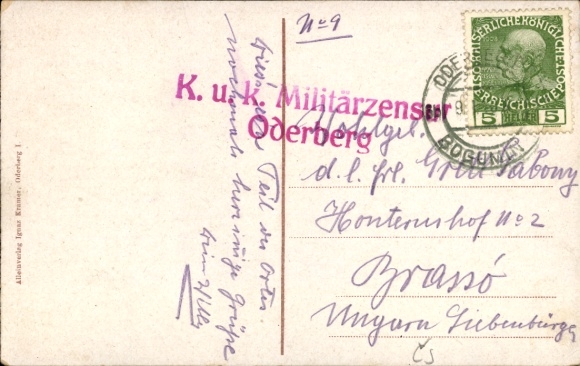 No 9
K. u. k. Militärzensur
Oderberg
KAISERLICHE KÖNIGLICHE
ÖSTERREICHISCHE POST
5 HELLER 5
ODERBERG
BOGUMIN
Wohlgeb.
d. l. frl. Grete Gabony
Honterushof No 2
Brassó
Ungarn Siebenbürgen
Teil des Ortes.
nochmals herzinnige Grüße
dein Willy
Alleinverlag Ignaz Krämer, Oderberg I.